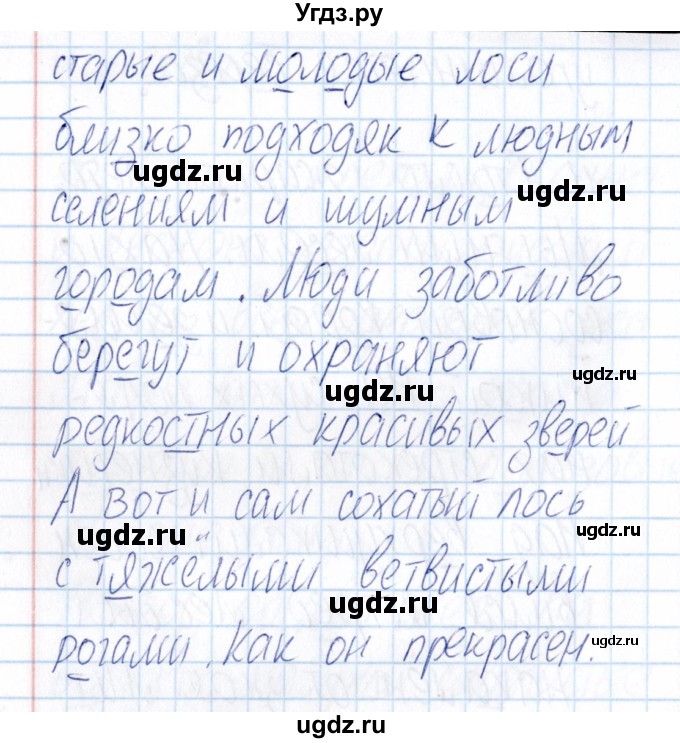 Угдз.ру
старые и молодые лоси
близко подходяк к людным
ugdz.ru
ugdz.ru
селениям и шумным
городам. Люди заботливо
берегут и охраняют
ugdz.ru
ugdz.ru
редкостных красивых зверей
А вот и сам сохатый лось
ugdz.ru
ugdz.ru
с тяжёлыми ветвистыми
ugdz.ru
рогами. Как он прекрасен.
ugdz.ru
ugdz.ru